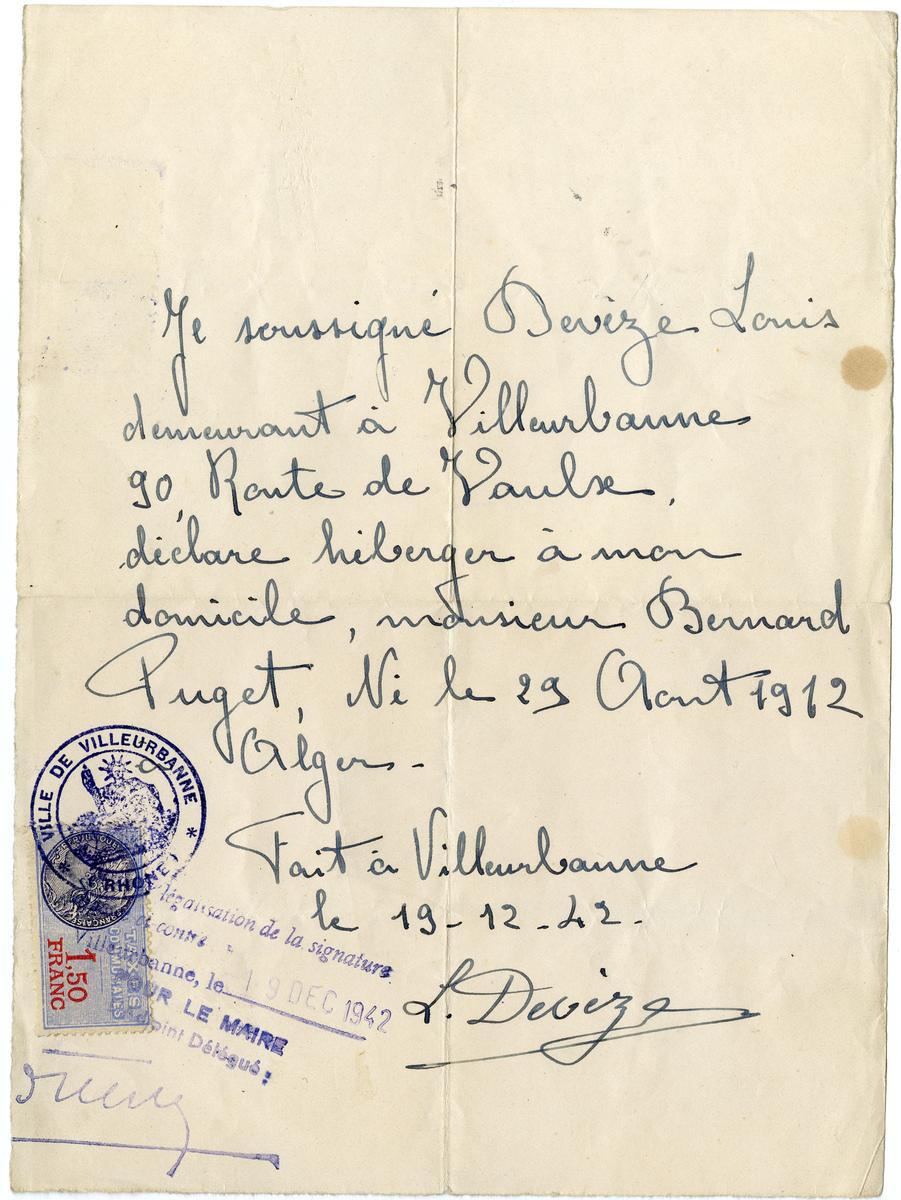 Je soussigné Devèze Louis
demeurant à Villeurbanne
90, Route de Vaulx,
déclare héberger à mon
domicile, monsieur Bernard
Puget, Né le 29 Août 1912
à Alger -
Fait à Villeurbanne
le 19-12-42-
L. Devèze
VILLE DE VILLEURBANNE
* (RHÔNE) *
RÉPUBLIQUE FRANÇAISE
TAXES COMMUNALES
1,50 FRANC
légalisation de la signature
ci contre
Villeurbanne, le 19 DEC 1942
POUR LE MAIRE
Adjoint Délégué: